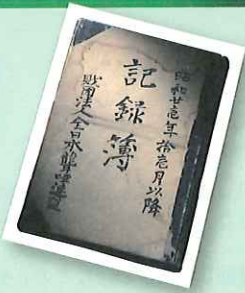 昭和廿壱年拾壱月以降
記録簿
財団法人全日本聾唖連盟